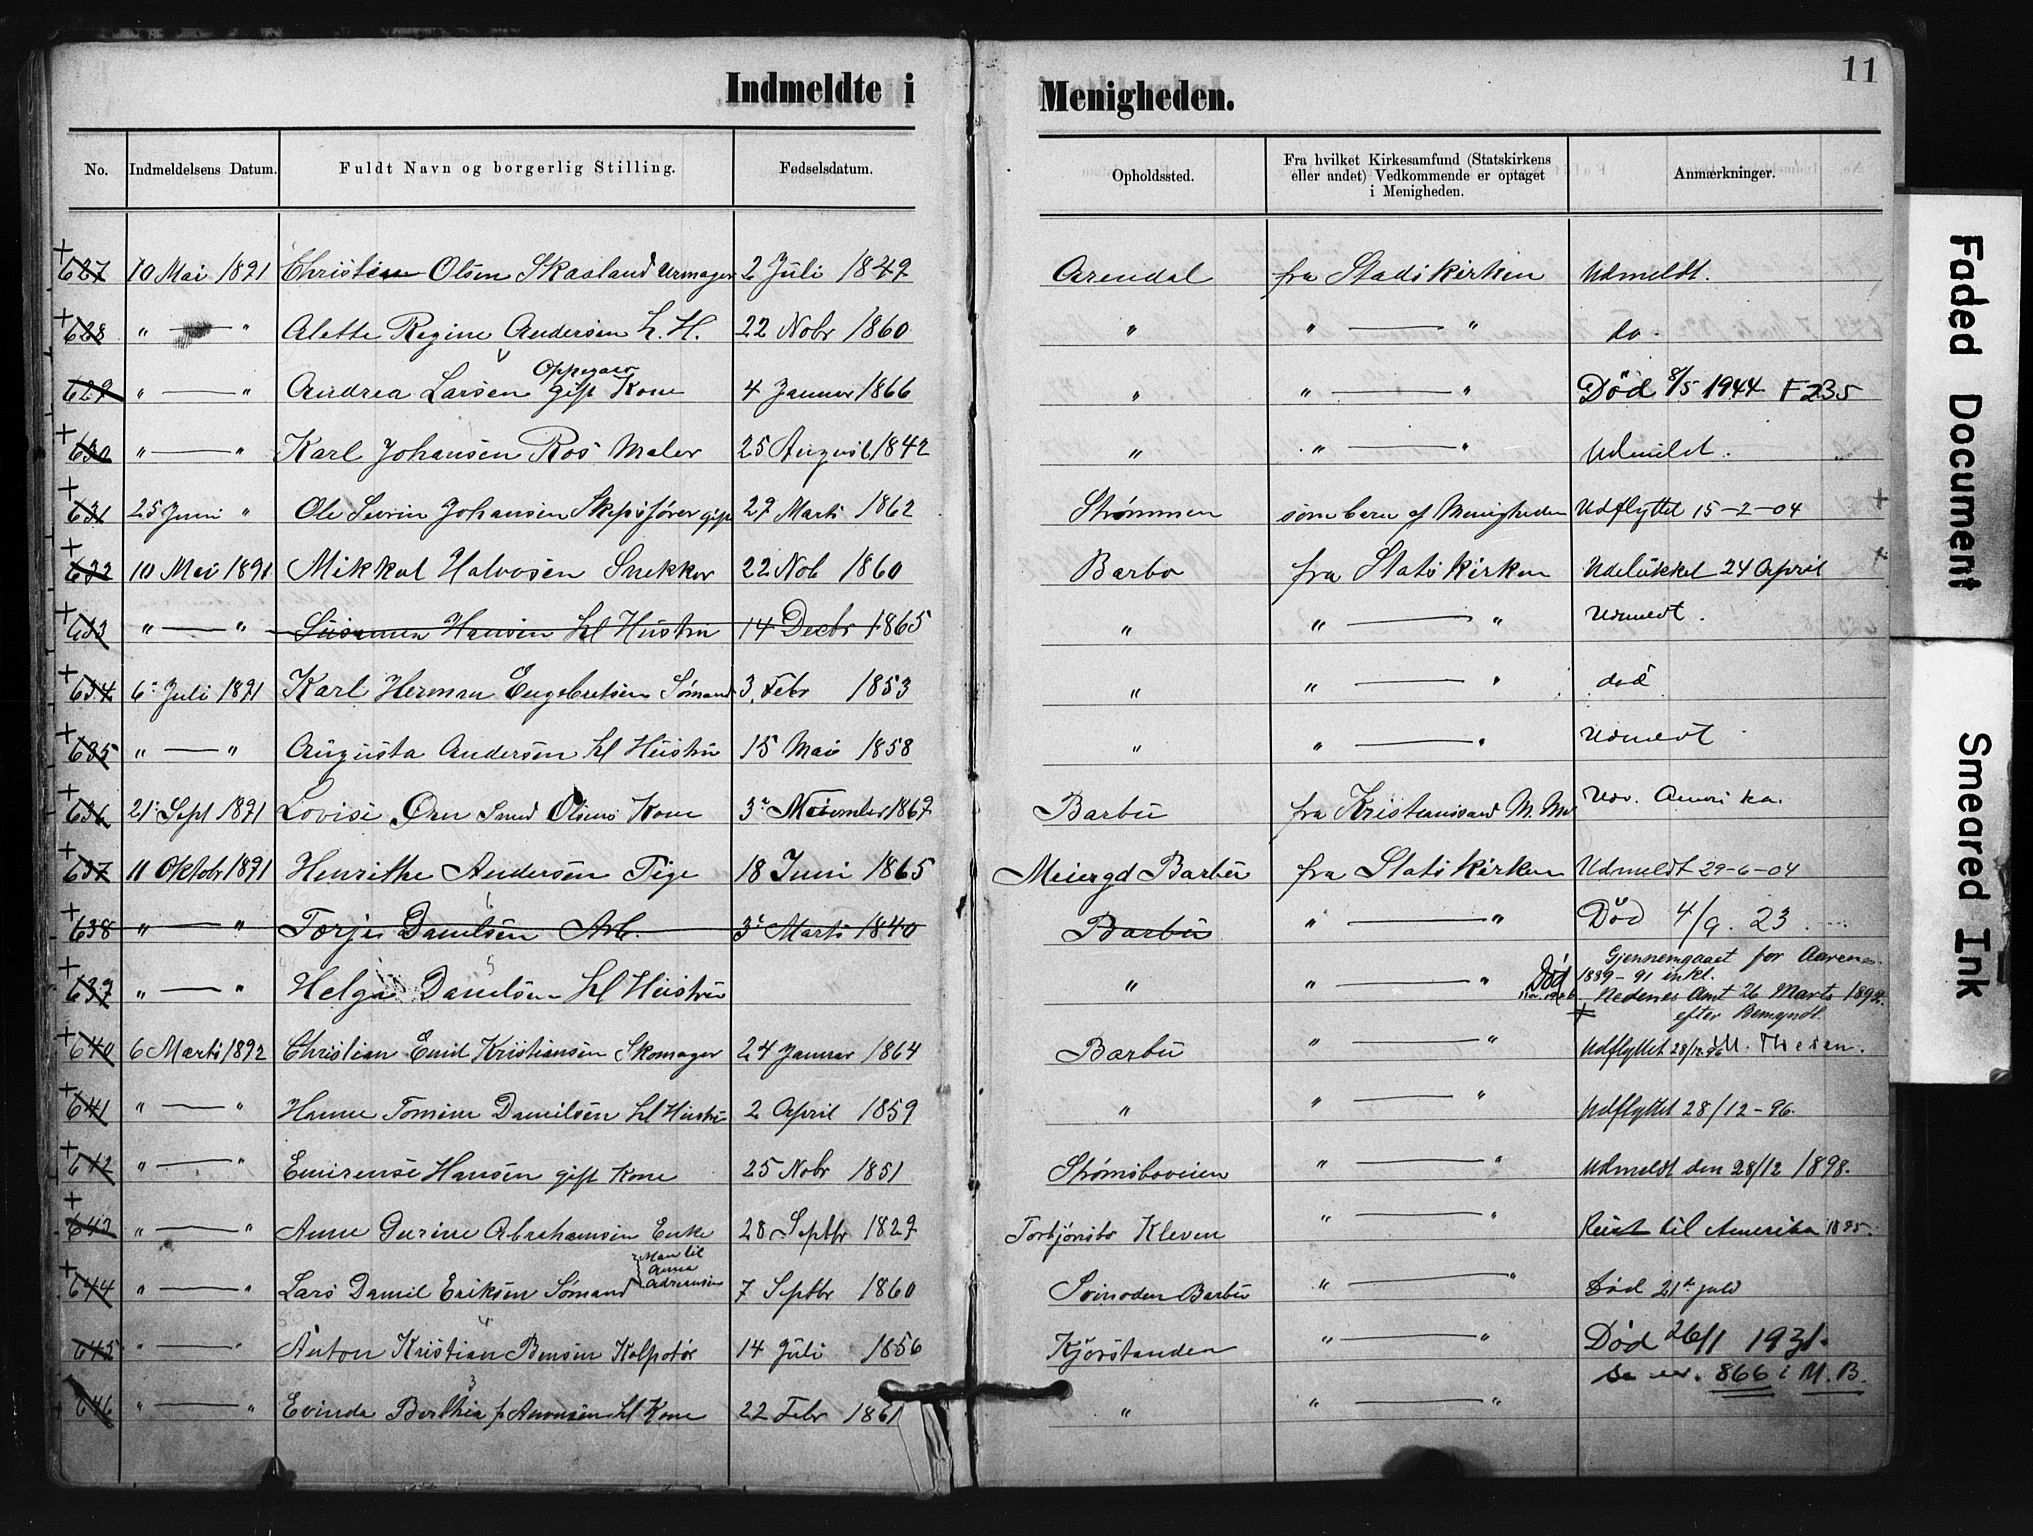 11
Indmeldte i Menigheden.
No. Indmeldelsens Datum. Fuldt Navn og borgerlig Stilling. Fødselsdatum. Opholdssted. Fra hvilket Kirkesamfund (Statskirkens eller andet) Vedkommende er optaget i Menigheden. Anmærkninger.
+ 627 10 Mai 1891 Christian Olsen Skaaland Urmager 2 Juli 1849 Arendal fra Stadskirken Udmeldt.
+ 628 " — " Alette Regine Andersen h. H. 22 Nobr 1860 " " — " do.
629 " — " Andrea Larsen gift Kone 4 Januar 1866 " " — " Død 8/5 1944 F 235
+ 630 " — " Karl Johansen Ros Maler 25 August 1842 " " — " Udmeldt.
+ 631 25 Juni " Ole Severin Johansen Skipsfører gift 27 Marts 1862 Strømmen som barn af Menigheden Udflyttet 15-2-04 +
+ 632 10 Mai 1891 Mikkal Halvosen Snekker 22 Nob 1860 Barbo fra Statskirken Udelukket 24 April +
+ 633 " — " Susanna Hansen hl Hustru 14 Decbr 1865 " " — " Udmeldt.
+ 634 6 Juli 1891 Karl Herman Engebretsen Sømand 3. Febr 1853 " " — " død
+ 635 " — " Augusta Andersen hl Hustru 15 Mai 1858 " " — " Udmeldt
+ 636 21 Sept 1891 Lovise Ørn Smed Olsens Kone 3 November 1867 Barbu fra Kristianssand M. M. Udv. Amerika.
+ 637 11 Oktobr 1891 Henrikke Andersen Pige 18 Juni 1865 Barbu fra Statskirken Udmeldt 29-6-04
+ 638 " — " Torjus Danilsen Arb. 3 Marts 1840 Barbu " — " Død 4/9. 23
+ 639 " — " Helga Danilsen hl Hustru " " — " Død Gjennemgaaet for Aarene
1889-91 inkl.
Nedenes Amt 26 Marts 1892
efter Bemyndl.
+ 640 6 Marts 1892 Christian Emil Kristiansen Skomager 24 Januar 1864 Barbu " — " Udflyttet 28/12.96 M. Thesen.
+ 641 " — " Hanne Tomine Danilsen hl Hustru 2 April 1859 " " — " Udflyttet 28/12-96.
+ 642 " — " Emirense Hansen gift Kone 25 Nobr 1851 Strømsboveien " — " Udmeldt den 28/12 1898.
+ 643 " — " Anne Gurine Abrahamsen Enke 28 Septbr 1827 Torbjørnsbo Kleven " — " Reist til Amerika 1895.
+ 644 " — " Lars Daniel Eriksen Sømand Man til Anna Adreansen 7 Septbr 1860 Svinoden Barbu " — " Død 21de juli
645 " — " Anton Kristian Bensen Kolpotør 14 Juli 1856 Kjørstanden " — " Død 26/1 1931.
646 " — " Evinda Berthea f. Anonsen hl Kone 22 Febr 1861 " " — " se nr. 866 i M. B.
Faded Document
Smeared Ink